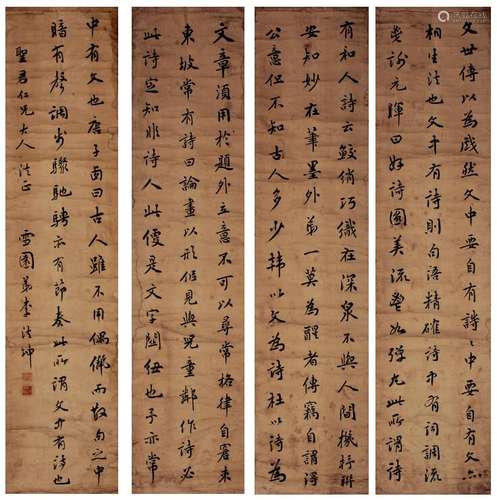 文世傳以為戲然文中要自有詩詩中要自有文亦
相生法也文中有詩則句語精確詩中有詞調流
暢謝元暉曰好詩圓美流轉如彈丸此所謂詩
有和人詩云鮫綃巧織在深泉不與人間機杼聯
安知妙在筆墨外第一莫為醒者傳竊自謂得
公意但不知古人多少韓以文為詩杜以詩為
文章須用於題外立意不可以尋常格律自窘束
東坡常有詩曰論畫以形似見與兒童鄰作詩必
此詩定知非詩人此便是文字關紐也予亦常
中有文也唐子西曰古人雖不用偶儷而散句之中
暗有聲調步驟馳騁亦有節奏此所謂文中有詩也
聖君仁兄大人法正
雪園弟李法坤